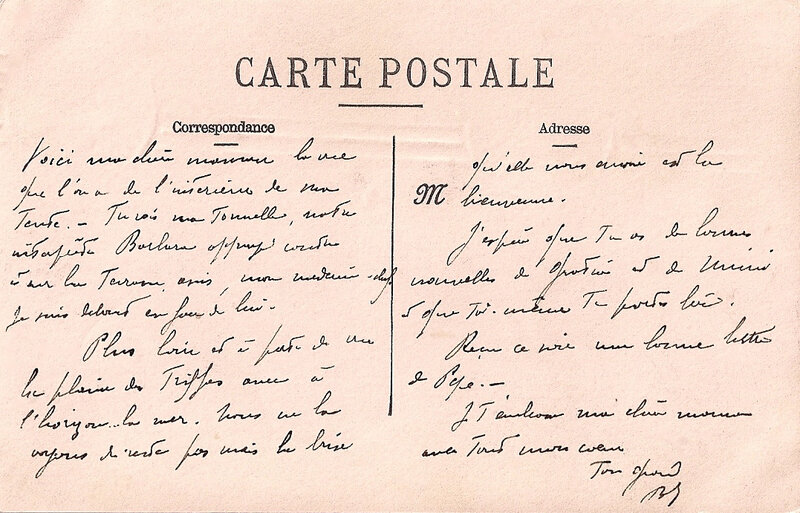 CARTE POSTALE
Correspondance
Voici ma chère maman la vue
que l'on a de l'intérieur de ma
Tente. - Tu vois ma Tonnelle, notre
interprète Barbara appuyé contre
sur la Terrasse, assis, mon médecin-chef
je suis debout en face de lui.
Plus loin et à perte de vue
la plaine des Triffas avec à
l'horizon... la mer. Nous ne la
voyons de reste pas mais la brise
Adresse
qu'elle nous envoie est la
M bienvenue.
J'espère que Tu as de bonnes
nouvelles de et de Mimi
et que Toi-même Tu portes bien.
Reçu ce soir une bonne lettre
de Pépé. -
Je T'embrasse ma chère maman
avec Tout mon cœur
Ton grand